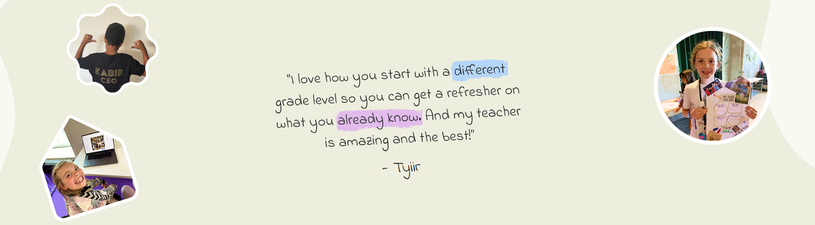 KABIR
CEO
"I love how you start with a different
grade level so you can get a refresher on
what you already know. And my teacher
is amazing and the best!"
- Tyiir